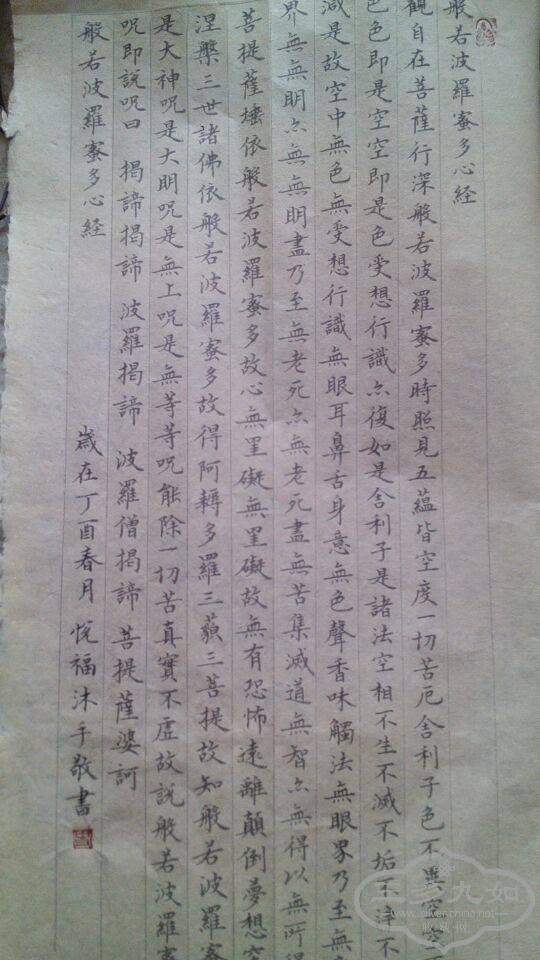 般若波羅蜜多心経
觀自在菩薩行深般若波羅蜜多時照見五蘊皆空度一切苦厄舍利子色不異空空
色色即是空空即是色受想行識亦復如是舍利子是諸法空相不生不滅不垢不淨不
減是故空中無色無受想行識無眼耳鼻舌身意無色聲香味觸法無眼界乃至無
界無無明亦無無明盡乃至無老死亦無老死盡無苦集滅道無智亦無得以無所得
菩提薩埵依般若波羅蜜多故心無罣礙無罣礙故無有恐怖遠離顛倒夢想究
涅槃三世諸佛依般若波羅蜜多故得阿耨多羅三藐三菩提故知般若波羅蜜
是大神呪是大明呪是無上呪是無等等呪能除一切苦真實不虛故說般若波羅蜜
呪即說呪曰 揭諦揭諦 波羅揭諦 波羅僧揭諦 菩提薩婆訶
般若波羅蜜多心経
歲在丁酉春月 悅福沐手敬書
三多九如